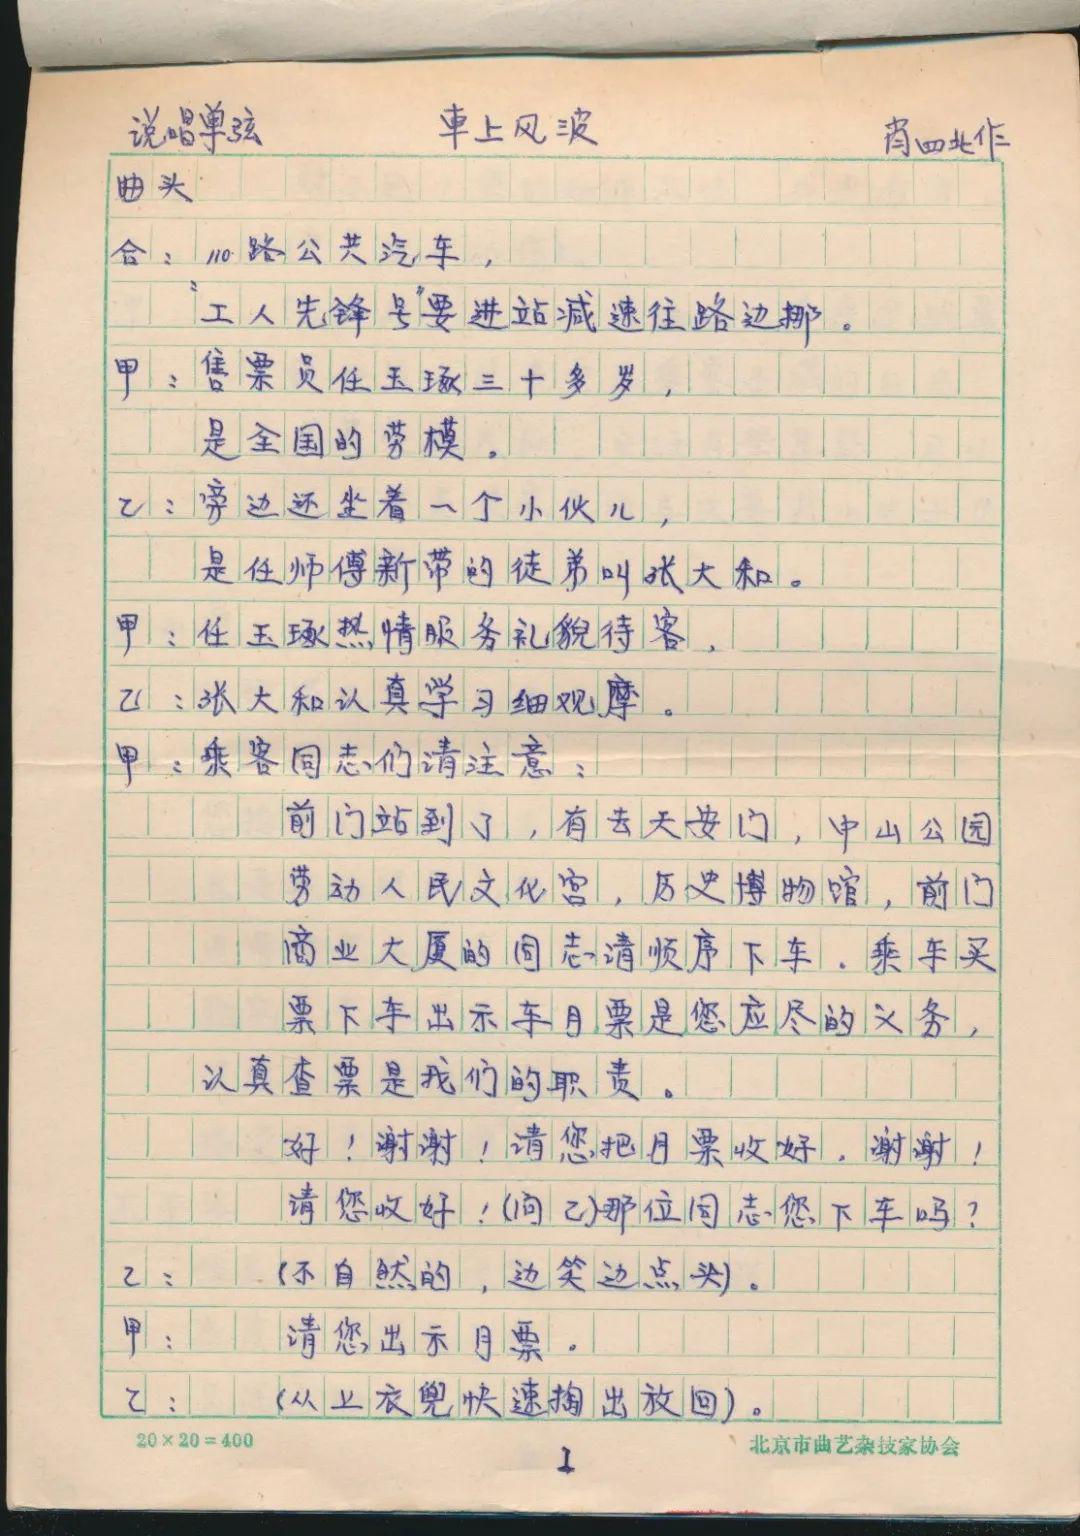 说唱单弦 車上风波 肖四北作
曲头
合：110路公共汽车，
“工人先锋号”要进站减速往路边挪。
甲：售票员任玉琢三十多岁，
是全国的劳模。
乙：旁边还坐着一个小伙儿，
是任师傅新带的徒弟叫张大和。
甲：任玉琢热情服务礼貌待客，
乙：张大和认真学习细观摩。
甲：乘客同志们请注意：
前门站到了，有去天安门，中山公园
劳动人民文化宫，历史博物馆，前门
商业大厦的同志请顺序下车．乘车买
票下车出示车月票是您应尽的义务，
认真查票是我们的职责。
好！谢谢！请您把月票收好．谢谢！
请您收好！（问乙）那位同志您下车吗？
乙：（不自然的，边笑边点头）。
甲：请您出示月票。
乙：（从上衣兜快速掏出放回）。
20×20=400 1 北京市曲艺杂技家协会